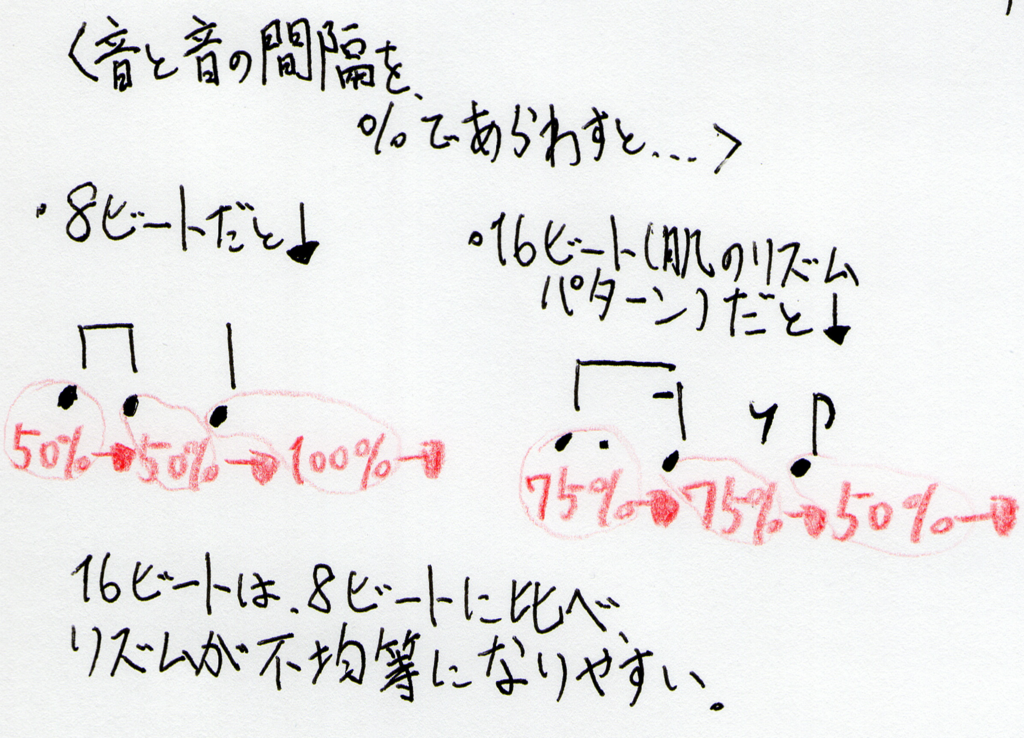 〈音と音の間隔を、
%であらわすと...〉
・8ビートだと↓
・16ビート(肌のリズム
パターン)だと↓
50%→50%→100%→
75%→75%→50%→
16ビートは、8ビートに比べ、
リズムが不均等になりやすい。